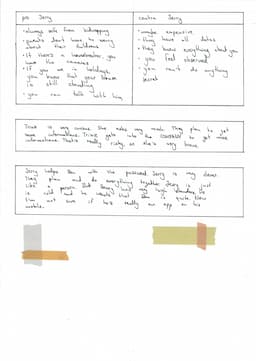 pro Jerry
• always safe from kidnapping
• parents don't have to worry about their children
• if there's a
you have the cameras
• if you are in holidays,
you know that your house
is still standing
• you can talk with him
contra Jerry
• maybe expensive
• they have all dates
• they know everything about you
• you feel observed
• you can't do anything
secret
Trixie is very curious. She asks very much. They plan to get
more informations. Trixie gets into the to get more
informations. That's really risky, so she's very brave.
Jerry helps Ben with the password. Jerry is very clever.
They plan and do everything together. Jerry is just
like a person. But Jerry
is cold and he
I'm not sure if he's really an app on his
mobile.